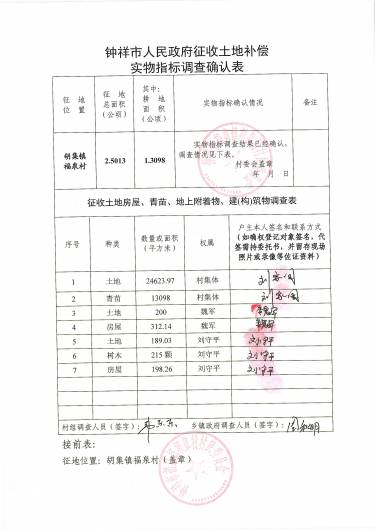 钟祥市人民政府征收土地补偿
实物指标调查确认表
征 地 位 置 征 地 总面积 (公顷) 其中: 耕 地 面 积 (公顷) 实物指标确认情况 备注
胡集镇 福泉村 2.5013 1.3098 实物指标调查结果已经确认,调查情况见下表。
村委会盖章
年 月 日
征收土地房屋、青苗、地上附着物、建(构)筑物调查表
序号 种类 数量或面积 (平方米) 权属 产生本人签名和联系方式 (如确权登记对象签名,代签需持委托书,并留存现场照片或录像等佐证资料)
1 土地 24623.97 村集体
2 青苗 13098 村集体
3 土地 200 魏军
4 房屋 312.14 魏军
5 土地 189.03 刘守平 刘守平
6 树木 215颗 刘守平 刘守平
7 房屋 198.26 刘守平 刘守平
村组调查人员(签字): 乡镇政府调查人员(签字):
接前表:
征地位置:胡集镇福泉村(盖章)